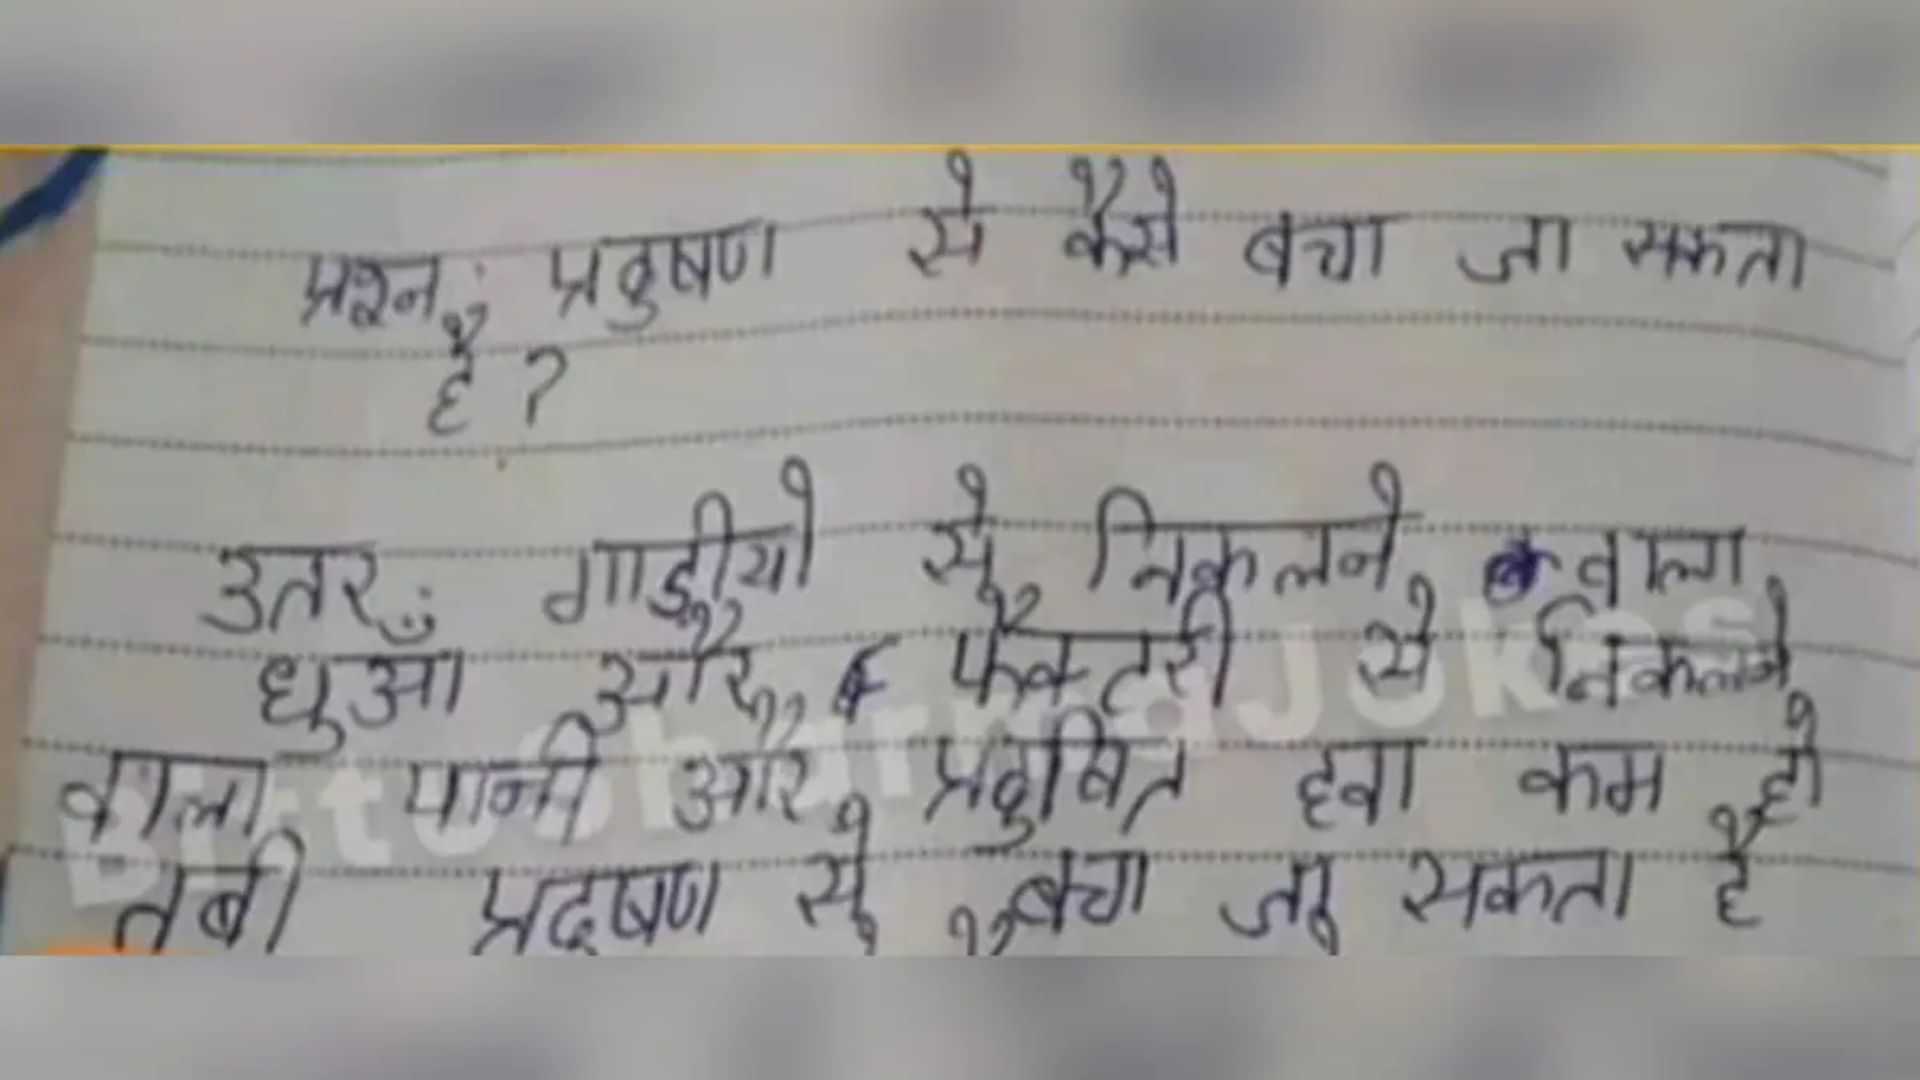 प्रश्न: प्रदुषण से कैसे बचा जा सकता
है ?
उतर: गाड़ीयो से निकलने वाला
धुआँ और फैक्टरी से निकलने
वाला पानी और प्रदुषित हवा कम हो
तबी प्रदूषण से बचा जा सकता है